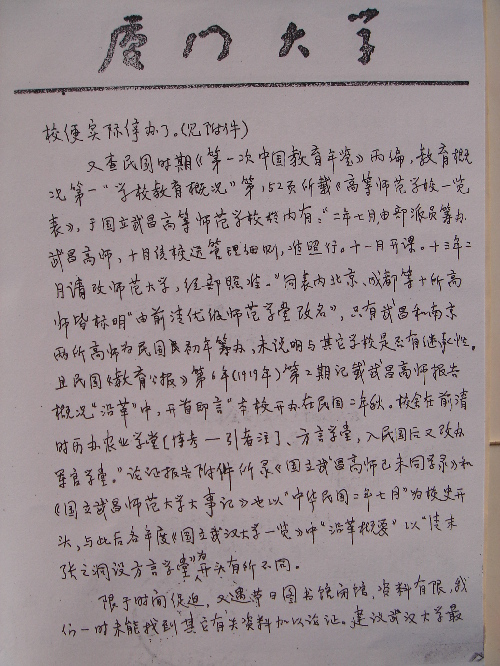 厦门大学
校便实际停办了。(见附件)
又查民国时期《第一次中国教育年鉴》丙编，教育概
况第一“学校教育概况”第152页所载《高等师范学校一览
表》，于国立武昌高等师范学校栏内有：“二年七月，由部派员筹办
武昌高师，十月该校送管理细则，准照行。十一月开课。十三年二
月请改师范大学，经部照准。”同表内北京、成都等十所高
师皆标明“由前清优级师范学堂改名”，只有武昌和南京
两所高师为民国初年筹办，未说明与其它学校是否有继承性。
且民国《教育公报》第6年(1919年)第2期记载武昌高师报告
概况“沿革”中，开首即言“本校开办在民国二年秋。校舍在前清
时历办农业学堂[博考—引者注]、方言学堂，入民国后又改办
军官学堂。”论证报告附件所录《国立武昌高师己未同学录》和
《国立武昌师范大学大事记》也以“中华民国二年七月”为校史开
头，与此后各年度《国立武汉大学一览》中“沿革概要”以“清末
张之洞设方言学堂”为开头有所不同。
限于时间促迫，又遇节日图书馆闭馆，资料有限，我
们一时未能找到其它有关资料加以论证。建议武汉大学最